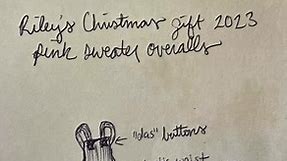 Riley's Christmas gift 2023
pink sweater overalls
"das" buttons
waist